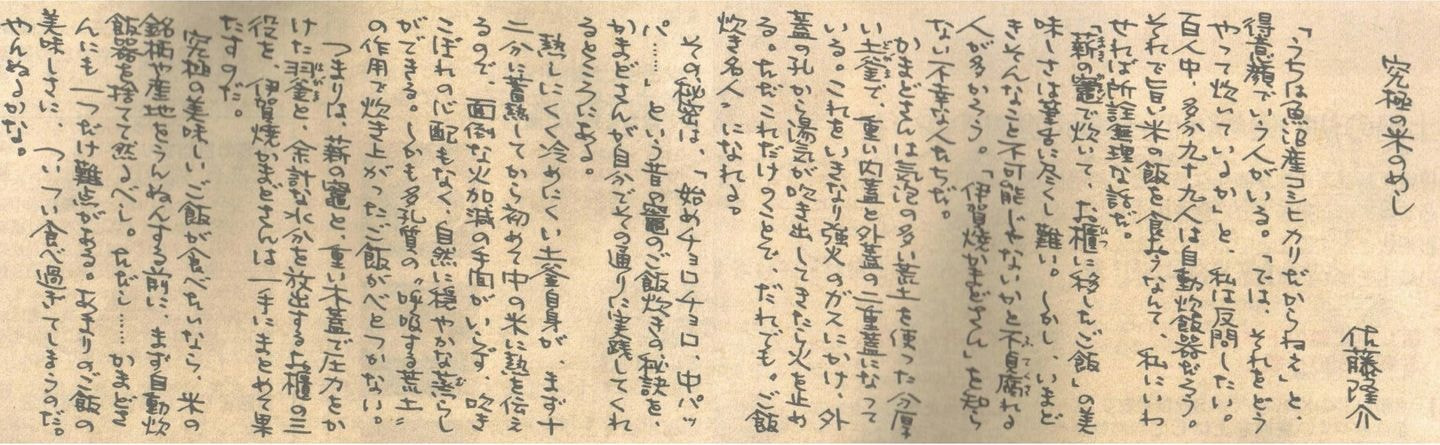 究極の米のめし
佐藤隆介
「うちは魚沼産コシヒカリだからねえ」と、
得意顔でいう人がいる。「では、それをどう
やって炊いているか」と、私は反問したい。
百人中、多分九十九人は自動炊飯器だろう。
それで旨い米の飯を食おうなんて、私にいわ
せれば所詮無理な話だ。
「薪の竈で炊いて、お櫃に移したご飯」の美
味しさは筆舌に尽くし難い。しかし、いまど
きそんなこと不可能じゃないかと不貞腐れる
人が多かろう。「伊賀焼かまどさん」を知ら
ない不幸な人たちだ。
かまどさんは気泡の多い荒土を使った分厚
い土釜で、重い内蓋と外蓋の二重蓋になって
いる。これをいきなり強火のガスにかけ、外
蓋の孔から湯気が吹き出してきたら火を止め
る。ただこれだけのことで、だれでも〝ご飯
炊き名人〟になれる。
その秘密は、「始めチョロチョロ、中パッ
パ……」という昔の竈のご飯炊きの秘訣を、
かまどさんが自分でその通りに実践してくれ
るところにある。
熱しにくく冷めにくい土釜自身が、まず十
二分に蓄熱してから初めて中の米に熱を伝え
るので、面倒な火加減の手間がいらず、吹き
こぼれの心配もなく、自然に穏やかな蒸らし
ができる。しかも多孔質の〝呼吸する荒土〟
の作用で炊き上がったご飯がべとつかない。
つまりは、薪の竈と、重い木蓋で圧力をか
けた羽釜と、余計な水分を放出するお櫃の三
役を、伊賀焼かまどさんは一手にまとめて果
たすのだ。
究極の美味しいご飯が食べたいなら、米の
銘柄や産地をうんぬんする前に、まず自動炊
飯器を捨てて然るべし。ただし……かまどさ
んにも一つだけ難点がある。あまりのご飯の
美味しさに、ついつい食べ過ぎてしまうのだ。
やんぬるかな。